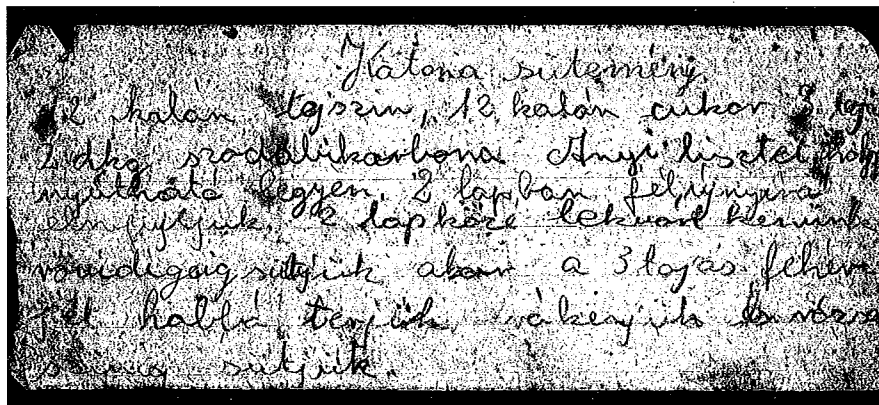 Katona sütemény
12 kalán tejszin, 12 kalán cukor 3 toj
2 dkg szodabikarbona Anyi lisztel, hogy
nyútható legyen, 2 lapban
elnyujtjuk. 2 lap közé lekvárt kenünk
sütjük akor a 3 tojás fehér
jét habbá verjük, rákenjük és
sütjük.